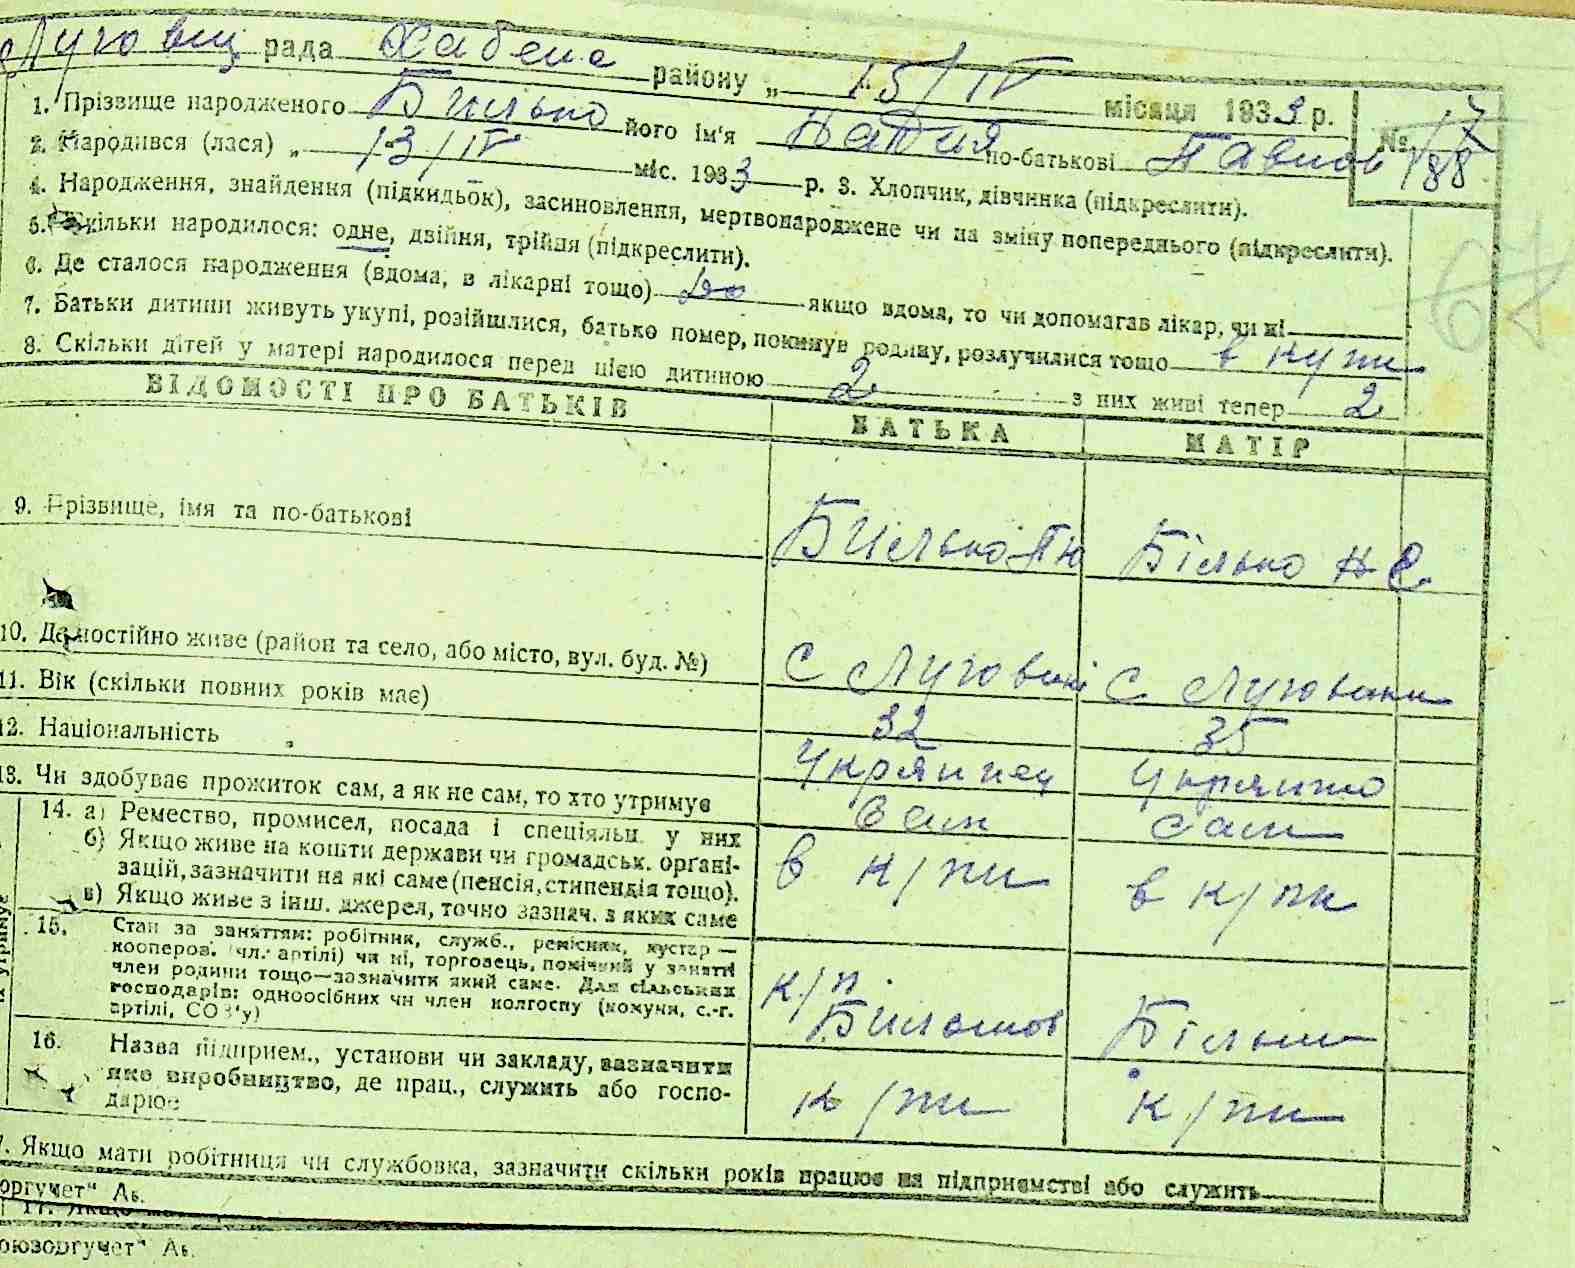 Луговиц рада Хабене району „ 15/IV місяця 1933 р.
№ 17
88
1. Прізвище народженого Билько його ім'я Надия по-батькові Павлов
2. Народився (лася) „ 13/IV міс. 1933 р. 3. Хлопчик, дівчинка (підкреслити).
4. Народження, знайдення (підкидьок), засиновлення, мертвонароджене чи на зміну попереднього (підкреслити).
5. Скільки народилося: одне, двійня, трійня (підкреслити).
6. Де сталося народження (вдома, в лікарні тощо) якщо вдома, то чи допомагав лікар, чи ні
7. Батьки дитини живуть укупі, розійшлися, батько помер, покинув родину, розлучилися тощо в купи
8. Скільки дітей у матері народилося перед цією дитиною 2 з них живі тепер 2
67
ВІДОМОСТІ ПРО БАТЬКІВ БАТЬКА МАТІР
9. Прізвище, імя та по-батькові Билько П Ю Білько Н С
10. Де постійно живе (район та село, або місто, вул. буд. №) С Луговики С Луговики
11. Вік (скільки повних років має) 32 35
12. Національність Украинец Украинко
13. Чи здобуває прожиток сам, а як не сам, то хто утримує Сам сам
14. а) Ремество, промисел, посада і спеціяльн. у них
б) Якщо живе на кошти держави чи громадськ. органі-
зацій, зазначити на які саме (пенсія, стипендія тощо).
в) Якщо живе з інш. джерел, точно зазнач. з яких саме
в к/пи в к/пи
15. Стан за заняттям: робітник, служб., ремісник, кустар —
кооперов. (чл. артілі) чи ні, торговець, помічний у занятті
член родини тощо—зазначити який саме. Для сільських
господарів: одноосібних чи член колгоспу (комуни, с.-г.
артілі, СОЗ'у)
к/п
16. Назва підприєм., установи чи закладу, зазначити
яке виробництво, де прац., служить або госпо-
дарює
к/пи к/пи
17. Якщо мати робітниця чи службовка, зазначити скільки років працює на підприємстві або служить
оргучет" Аб.
17. Якщо
оюзоргучет" Аб.